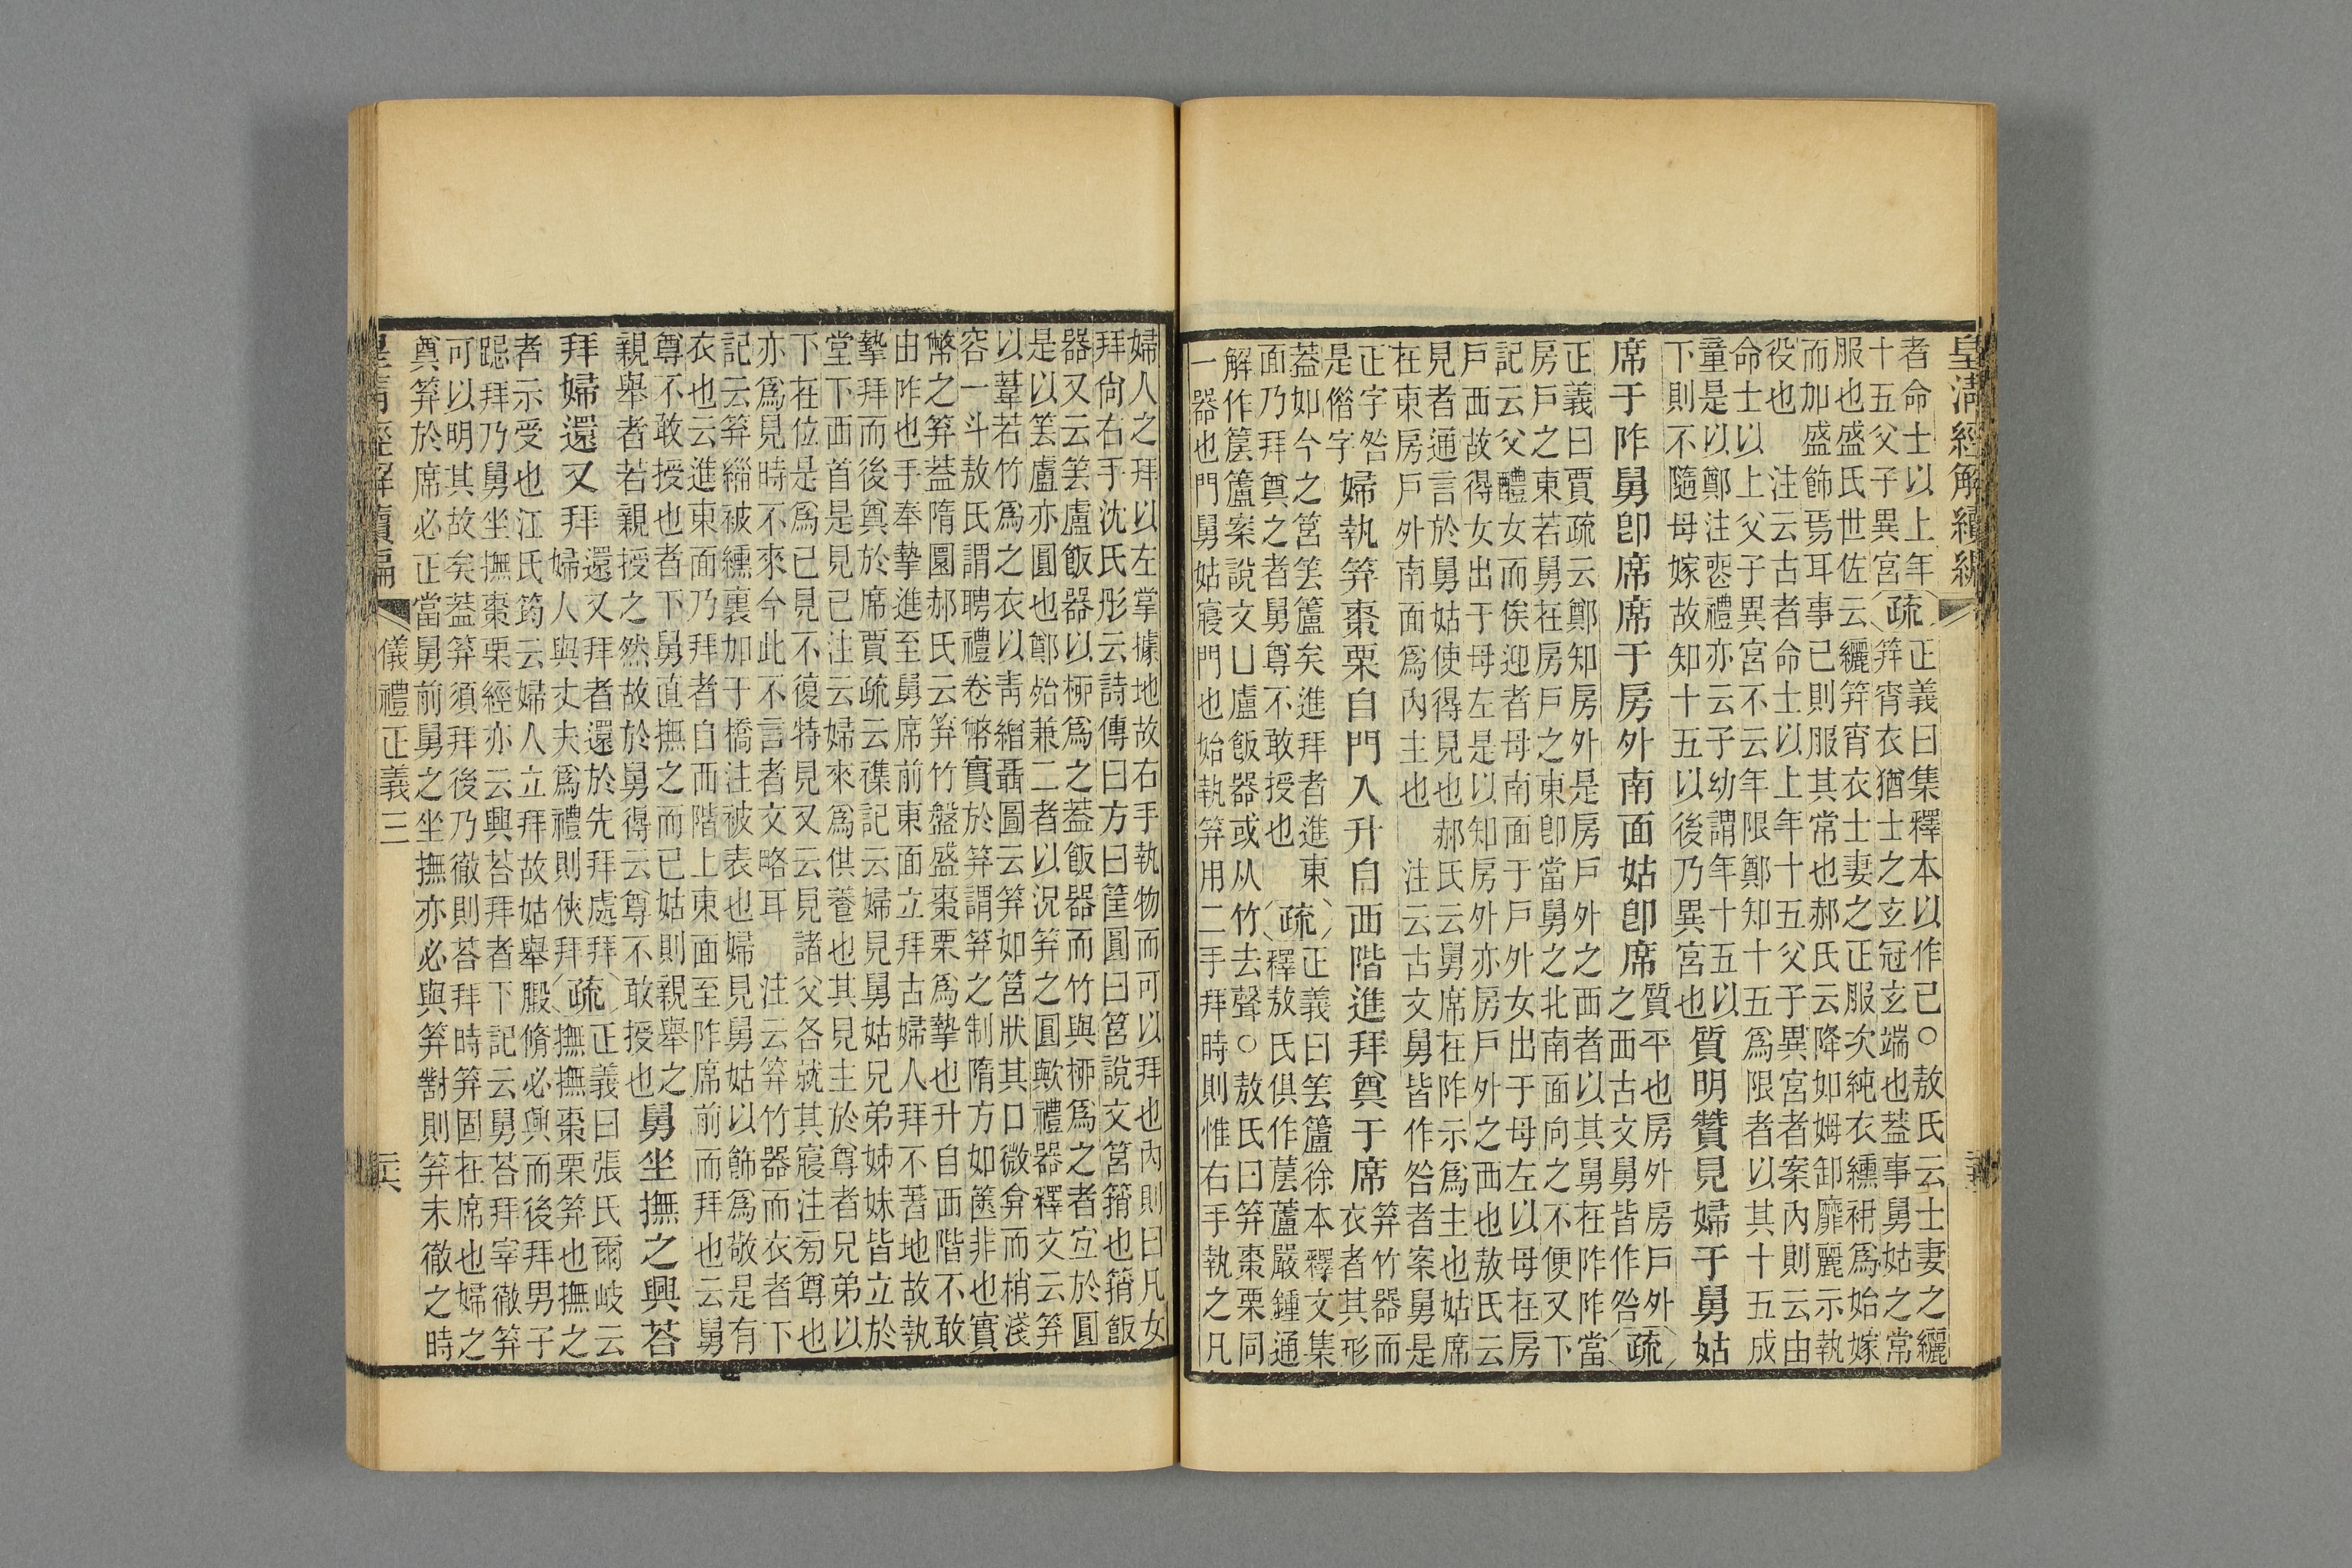 皇清經解續編
者命士以上年〔疏〕正義曰集釋本以作已○敖氏云士妻之纚
十五父子異宮笄宵衣猶士之玄冠玄端也蓋事舅姑之常
服也盛氏世佐云纚笄宵衣士妻之正服次純衣纁袡爲始嫁
而加盛飾焉耳事已則服其常也郝氏云降如姆卸靡麗示執
役也 注云古者命士以上年十五父子異宮者案內則云由
命士以上父子異宮不云年限鄭知十五爲限者以其十五成
童是以鄭注喪禮亦云子幼謂年十五以
下則不隨母嫁故知十五以後乃異宮也
質明贊見婦于舅姑
席于阼舅卽席席于房外南面姑卽席
質平也房外房戶外
之西古文舅皆作咎〔疏〕
正義曰賈疏云鄭知房外是房戶外之西者以其舅在阼阼當
房戶之東若舅在房戶之東卽當舅之北南面向之不便又下
記云父醴女而俟迎者母南面于戶外女出于母左以母在房
戶西故得女出于母左是以知房外亦房戶外之西也敖氏云
見者通言於舅姑使得見也郝氏云舅席在阼示爲主也姑席
在東房戶外南面爲內主也 注云古文舅皆作咎者案舅是
正字咎
是俗字
婦執笲棗栗自門入升自西階進拜奠于席
笲竹器而
衣者其形
蓋如今之筥𥬔籚矣進拜者進東
面乃拜奠之者舅尊不敢授也
〔疏〕正義曰𥬔籚徐本釋文集
釋敖氏俱作蘆嚴鍾通
解作籚案說文凵盧飯器或从竹去聲○敖氏曰笲棗栗同
一器也門舅姑寢門也始執笲用二手拜時則惟右手執之凡
婦人之拜以左掌據地故右手執物而可以拜也內則曰凡女
拜尙右手沈氏彤云詩傳曰方曰筐圓曰筥說文筥䈰也䈰飯
器又云𥬔盧飯器以栁爲之蓋飯器而竹與栁爲之者宜於圓
是以𥬔盧亦圓也鄭殆兼二者以況笲之圓歟禮器釋文云笲
以葦若竹爲之衣以靑繒聶圖云笲如筥狀其口微弇而梢淺
容一斗敖氏謂聘禮卷幣實於笲謂笲之制隋方如篋非也實
幣之笲蓋隋圓郝氏云笲竹盤盛棗栗爲摯也升自西階不敢
由阼也手奉摯進至舅席前東面立拜古婦人拜不著地故執
摯拜而後奠於席賈疏云襍記云婦見舅姑兄弟姊妹皆立於
堂下西面首是見已注云婦來爲供養也其見主於尊者兄弟以
下在位是爲已見不復特見又云見諸父各就其寢注云旁尊也
亦爲見時不來今此不言者文略耳 注云笲竹器而衣者下
記云笲緇被纁裏加于橋注被表也婦見舅姑以飾爲敬是有
衣也云進東面乃拜者自西階上東面至阼席前而拜也云舅
尊不敢授也者下舅直撫之而已姑則親舉之
親舉者若親授之然故於舅得云尊不敢授也
舅坐撫之興荅
拜婦還又拜
還又拜者還於先拜處拜
婦人與丈夫爲禮則俠拜
〔疏〕正義曰張氏爾岐云
撫撫棗栗笲也撫之
者示受也江氏筠云婦人立拜故姑舉腶脩必興而後拜男子
跽拜乃舅坐撫棗栗經亦云興荅拜者下記云舅荅拜宰徹笲
可以明其故矣蓋笲須拜後乃徹則荅拜時笲固在席也婦之
奠笲於席必正當舅前舅之坐撫亦必與笲對則笲未徹之時
皇清經解續編
儀禮正義三